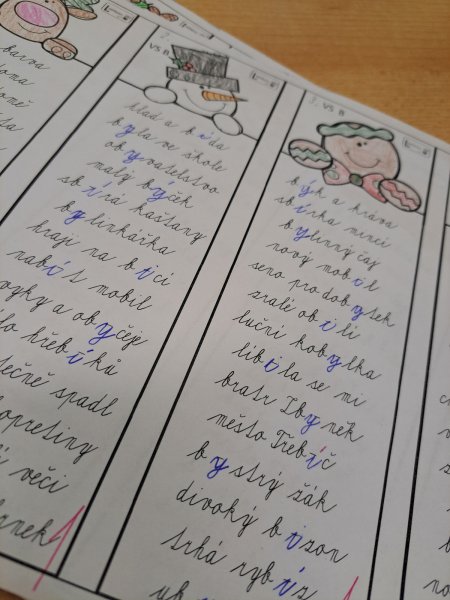 barva
doma
2.
VS B
hlad a bída
byla ve škole
obyvatelstvo
malý býček
sbírá kaštany
bylinkářka
hraji na bicí
nabít mobil
a obyčeje
hřebíků
spadl
věci
2. VS B
býk a kráva
sbírka mincí
bylinný čaj
nový mobil
seno pro dobytek
zralé obilí
luční kobylka
líbila se mi
bratr Zbyněk
město Třebíč
bystrý žák
divoký bizon
trhá rybíz